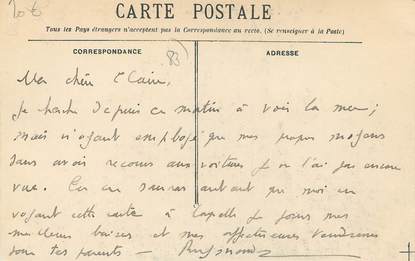 20 €
CARTE POSTALE
Tous les Pays étrangers n'acceptent pas la Correspondance au recto. (Se renseigner à la Poste)
CORRESPONDANCE
ADRESSE
83
Ma chère Claire,
Je cherche depuis ce matin à voir la mer;
mais n'ayant employé que mes propres moyens
sans avoir recours aux voitures je ne l'ai pas encore
vue. Tu en sauras autant que moi en
voyant cette carte à laquelle je joins mes
meilleurs baisers et mes affectueuses tendresses
pour tes parents —